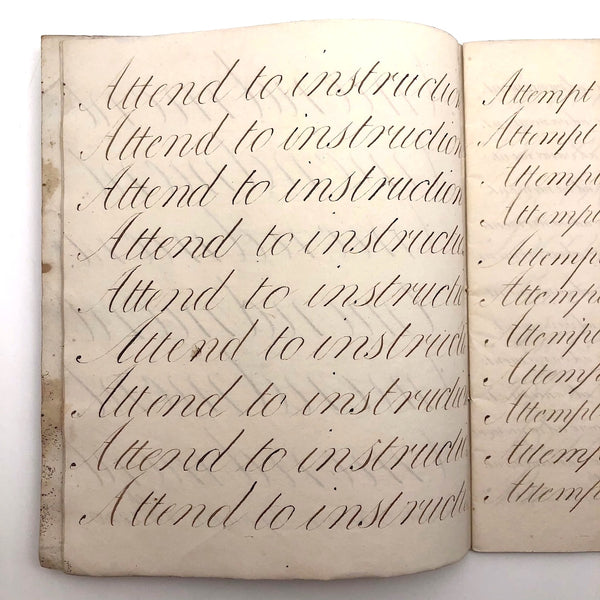 Attend to instruction
Attend to instruction
Attend to instruction
Attend to instructi
Attend to instructi
Attend to instructi
Attend to instruction
Attend to instructi
Attend to instructi
Attempt
Attempt
Attempt
Attempt
Attempt
Attempt
Attempt
Attempt
Attempt
Attemp
Attempt